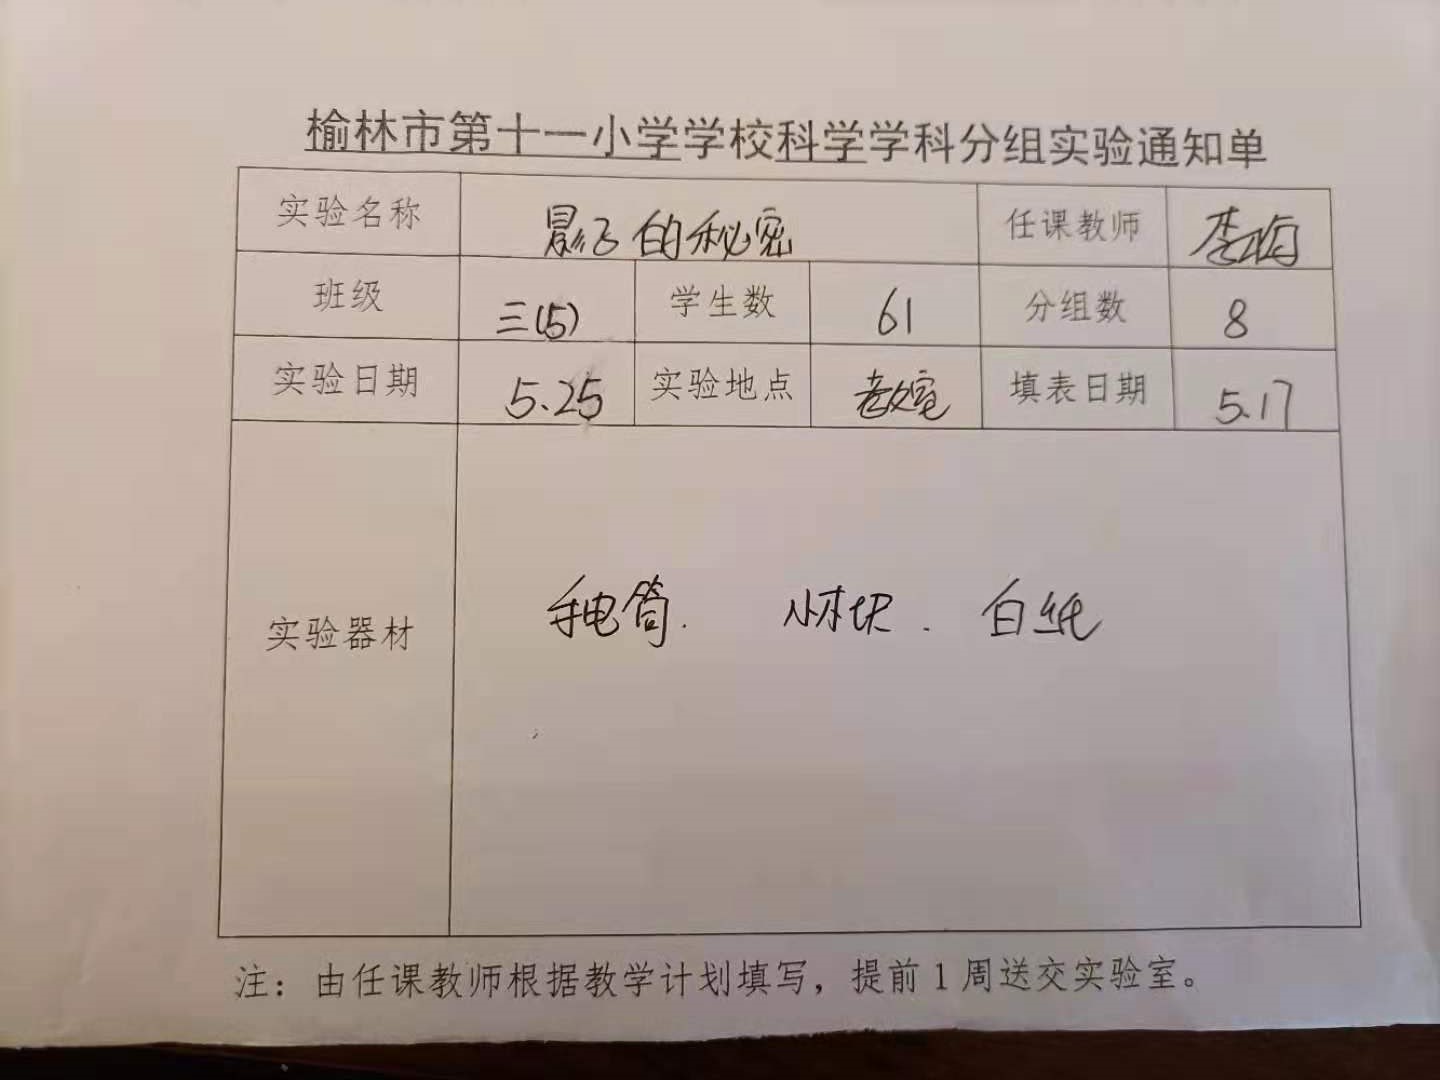 榆林市第十一小学学校科学学科分组实验通知单
实验名称 影子的秘密 任课教师 李
班级 三(5) 学生数 61 分组数 8
实验日期 5.25 实验地点 教室 填表日期 5.17
实验器材 手电筒. 小木块. 白纸
注：由任课教师根据教学计划填写，提前1周送交实验室。